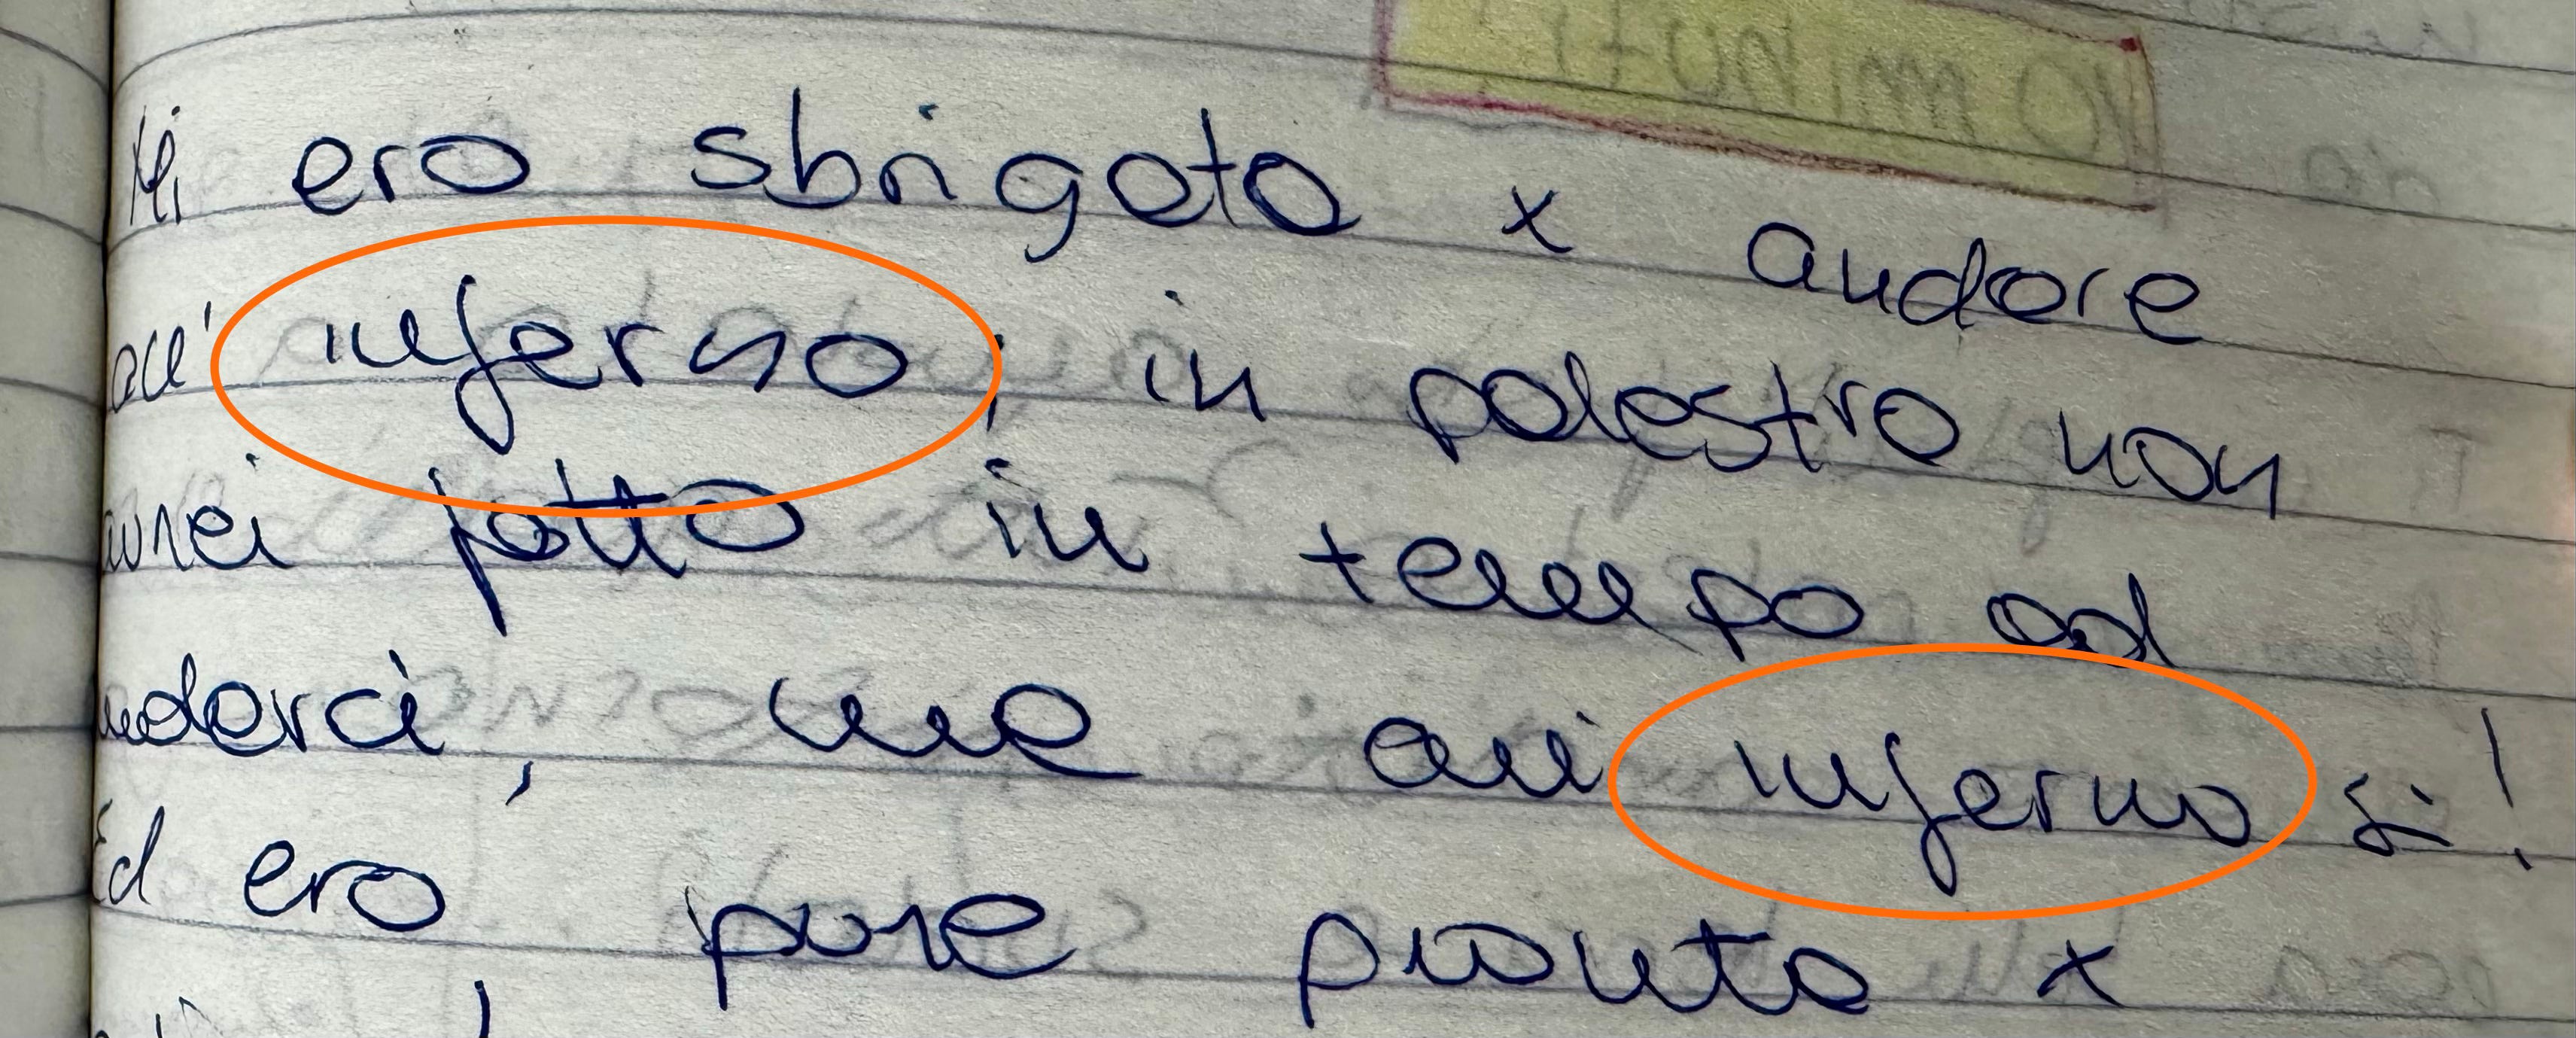 Mi ero sbrigata x andare
all' inferno, in palestra non
avrei fatto in tempo ad
andarci, me all' inferno sì!
Ed ero pure pronta x